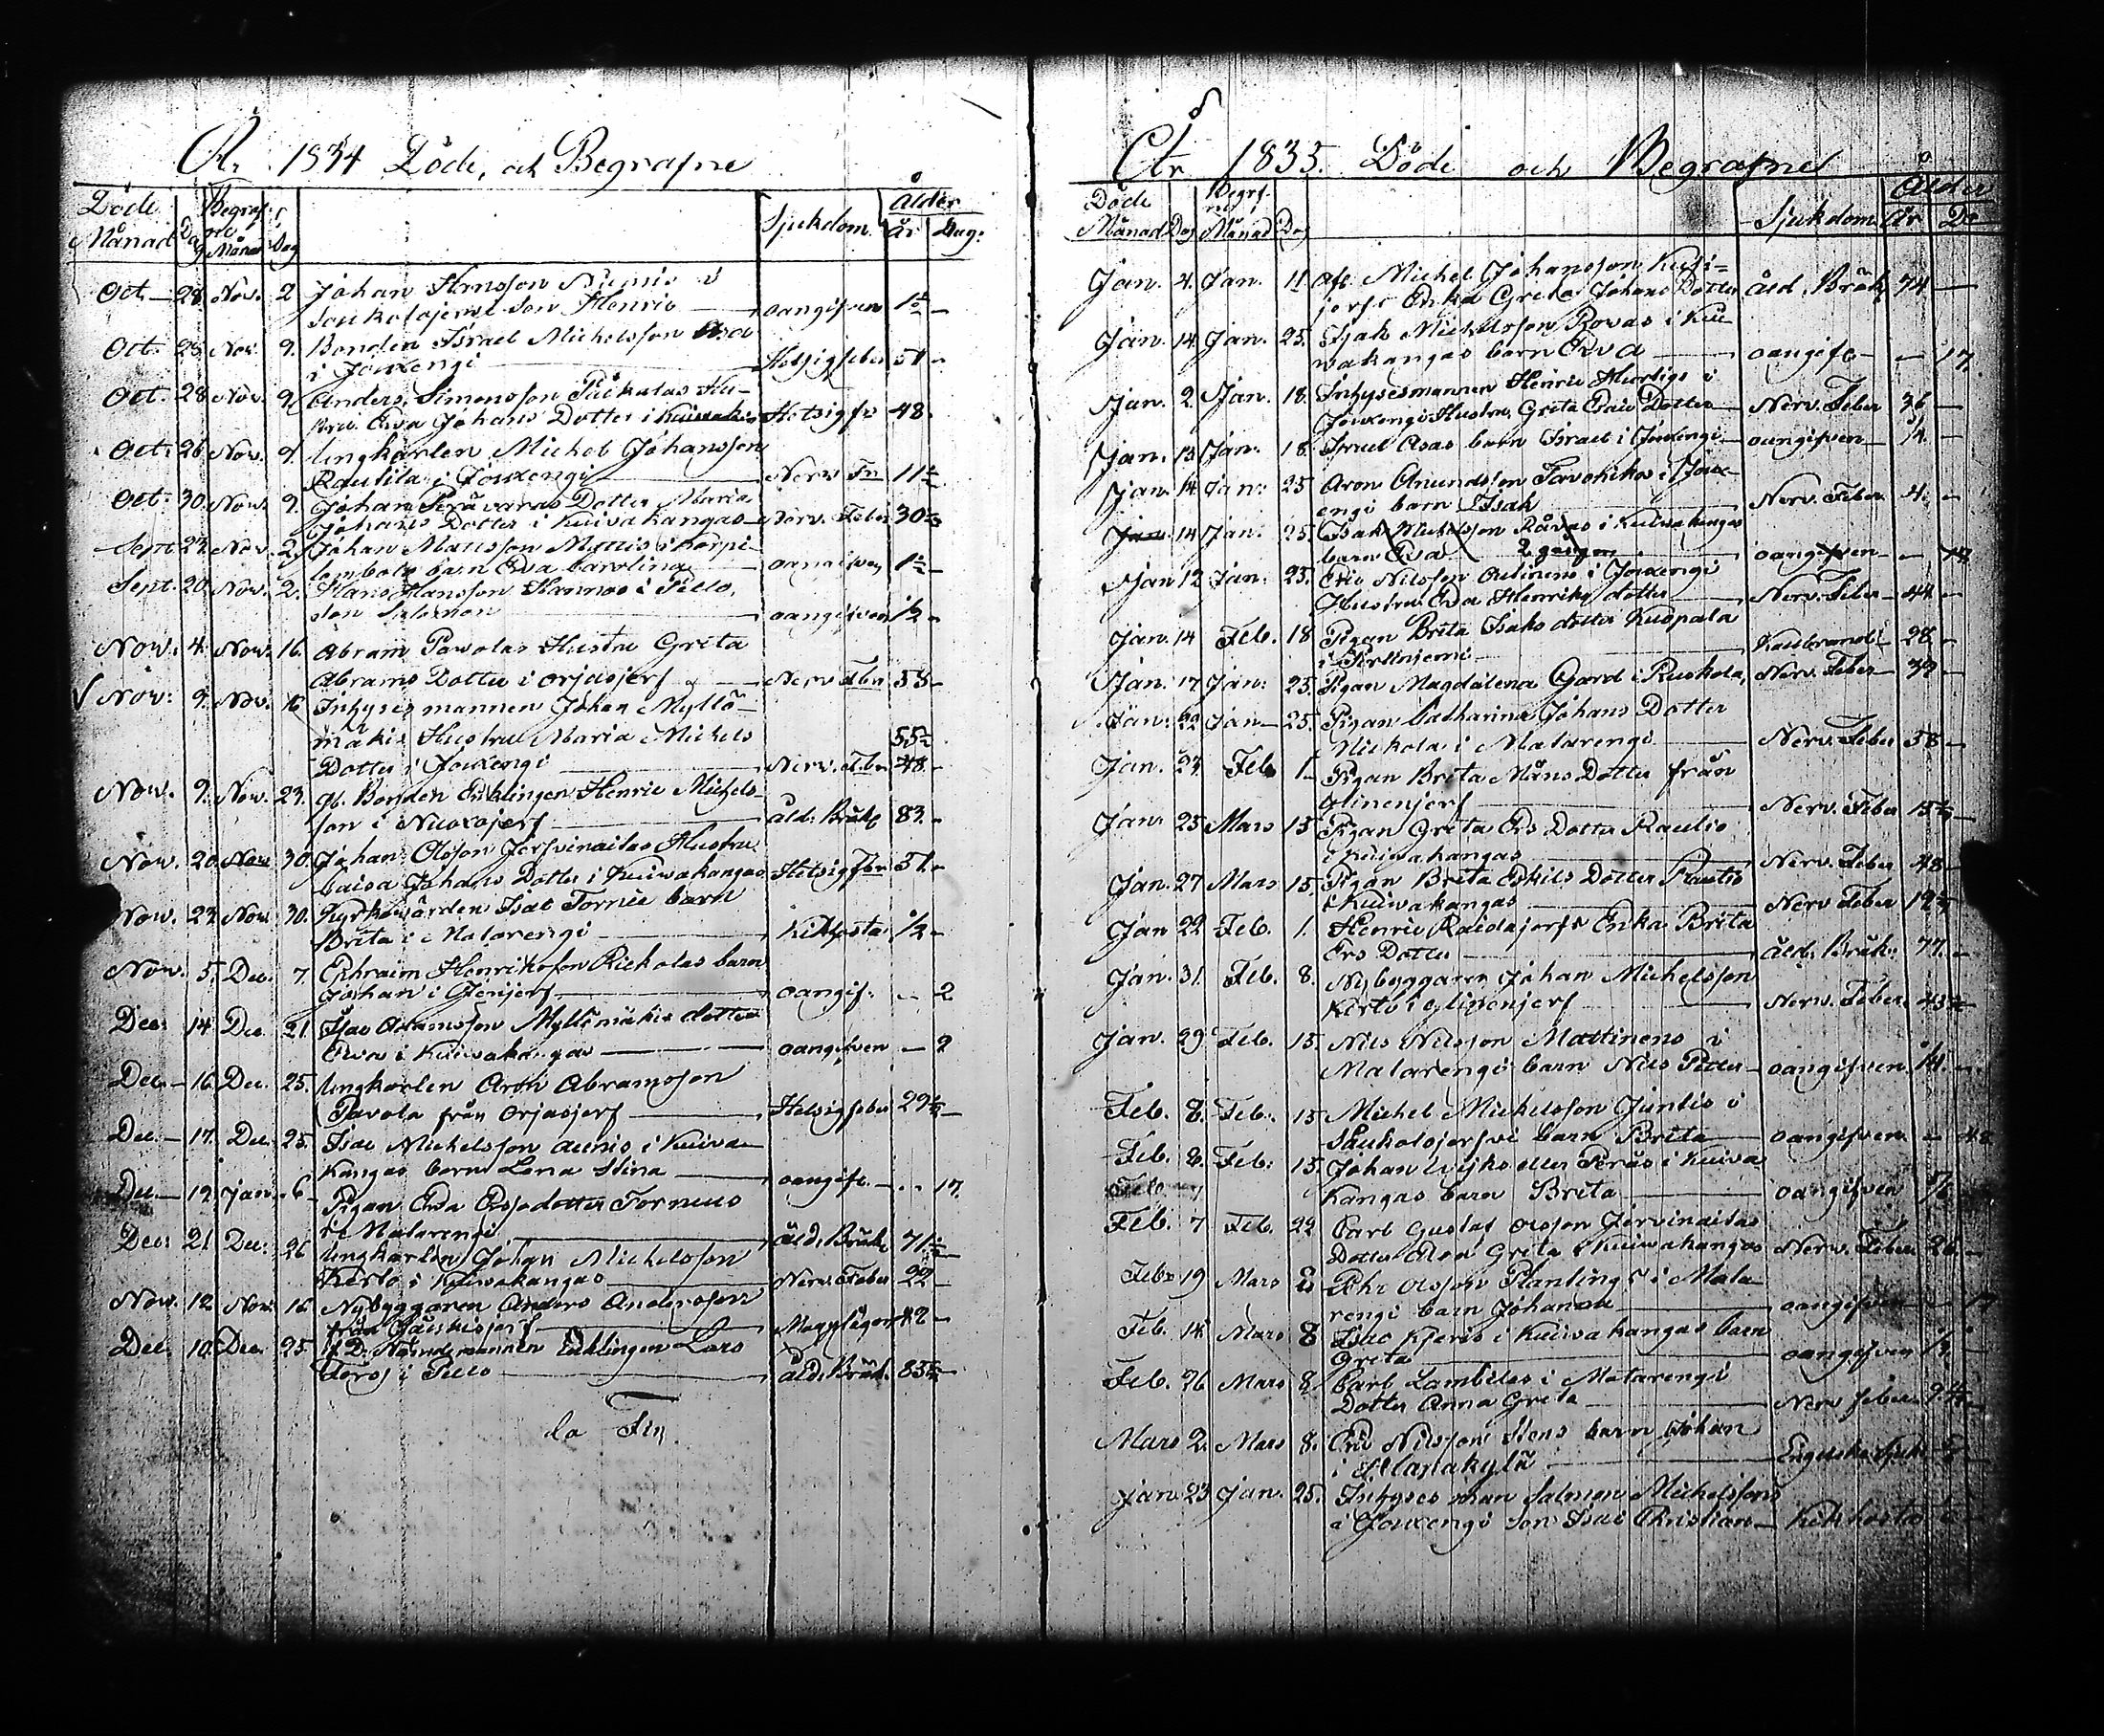 År 1834 Döde, och Begrafne
Döde Begrafne Sjukdom Ålder
Månad Dag Månad Dag År Dag.
Oct. 28. Nov. 2 Johan Hansson i
Son Henric oangifven 1½
Oct. 25 Nov. 9. Bonden Israel Michelsson Asa
i Jouxengi Hetsigfeber 51
Oct. 28 Nov. 9 Anders Simonsson Hu-
stru Eva Johans Dotter i Kuivakangas Hetsigfr 48.
Oct. 26 Nov. 9. Ungkarlen Michel Johansson
Rautila i Jouxengi Nerv Fr 11½
Oct. 30. Nov. 9. Johan Perävaras Dotter Maria
Johans Dotter i Kuivakangas Nerv. Feber 30
Sept. 27. Nov. 2. Johan Mattsson Mattis i Korpi-
lombolo barn Eva Carolina oangifven 1½
Sept. 20. Nov. 2. Hans Hansson Hannas i Pello,
Son Salomon oangifven ½
Nov. 4. Nov. 16 Abram Pavolas Hustru Greta
Abrams Dotter i Orjasjerf Nerv Fber 55
Nov: 9. Nov. 16 Inhyses mannen Johan Myllö-
mäkis Hustru Maria Michels 55½
Dotter i Jouxengi Nerv. Feber 48.
Nov. 9. Nov. 23. Af. Bonden Enklingen Henric Michels-
son i Nuoxojerf åld. Bräkl 83.
Nov. 20. Nov 30. Johan Olsson Jerfvinailas Hustru
Caisa Johans Dotter i Kuivakangas Hetsigfbr 51.
Nov. 23. Nov. 30. Kyrkovärden Isac Tornie barn
Brita i Matarengi Kikhosta ½
Nov. 5. Dec. 7. Ephraim Henriksson Rickolas barn
Johan i oangif. 2
Dec. 14. Dec. 21. Isac Abramsson Myllimäkis dotter
Eva i Kuivakangas oangifven 2
Dec. 16. Dec. 25. Ungkarlen Aron Abramsson
Pavola från Orjasjerf Hetsigfeber 29
Dec. 17. Dec. 25. Isac Michelsson i Kuiva-
kangas barn Lena Stina oangifv. 17.
Dec. 19. Jan. 6. Pigan Eva Ersdotter Torneus
i Matarengi åld. Bräkl. 71
Dec. 21. Dec. 26 Ungkarlen Johan Michelsson
Kerto i Kuivakangas Nerv. Feber 22
Nov. 12. Nov. 16 Nybyggaren Anders Andersson
från 42
Dec. 10. Dec. 25 F. D. Nämndemannen Enklingen Lars
i Pello åld. Bräkl. 83
la Fin
År 1835. Döde och Begrafne
Döde Begrafne Sjukdom Ålder
Månad Dag Månad Dag År D
Jan. 4. Jan. 11 Afl. Michel Johansson Kusi-
jerfs Enka Greta Johans Dotter Åld. Bräkl 74
Jan. 14. Jan. 25. Isak Michelsson Rovas i Kui-
vakangas barn Eva oangifv. 17.
Jan. 2. Jan. 18. Inhysesmannen Henric Hurtigs i
Jouxengi Hustru Greta Dotter Nerv. Feber 36
Jan. 13 Jan. 18. Israel Asas barn Israel i Jouxengi oangifven ¼
Jan. 14 Jan. 25 Aron Anundsson i Joux-
engi barn Isak Nerv. Feber 4.
Jan. 14 Jan: 25. Isak Michelsson Rovas i Kuivakangas
barn Eva 2 gånger oangifven 17.
Jan 12 Jan: 25. Eric Nilsson i Jouxengi
Hustru Eva Henriks dotter Nerv. Feber 44
Jan. 14 Feb. 18 Pigan Brita Isaks dotter Kuopala
i Kallbrand 28
Jan. 17 Jan: 25. Pigan Magdalena Gard i Ruskola Nerv. Feber 39
Jan: 22 Jan 25. Pigan Catharina Johans Dotter
Nickola i Matarengi Nerv. Feber 58
Jan. 27 Feb 1. Pigan Brita Måns Dotter från
Nerv. Feber 15
Jan. 25 Mars 15 Pigan Greta Ers Dotter Rautio
i Kuivakangas Nerv. Feber 48
Jan. 27 Mars 15. Pigan Brita Eskils Dotter Rautio
i Kuivakangas Nerv Feber 19
Jan 22 Feb. 1. Henric Raidajerfs Enka Brita
Ers Dotter Åld. Bräk. 77.
Jan. 31. Feb. 8. Nybyggaren Johan Michelsson
Kerto i Nerv. Feber. 43
Jan. 29 Feb. 15. Nils Nilsson Mattinens i
Matarengi barn Nils Petter oangifven ¼.
Feb. 8. Feb. 15 Michel Michelsson Juntis i
barn Brita oangifven 48
Feb. 8. Feb: 15. Johan eller Perås i Kuiva
Feb. 7 kangas barn Brita oangifven
Feb. 7 Feb. 22 Carl Gustaf Olsson Jervinailas
Dotter Greta i Kuivakangas Nerv. Feber 26
Feb. 19 Mars 8 Pehr Olsson Plantings i Mata
rengi barn Johanna oangifven 17
Feb. 14 Mars 8 Isac i Kuivakangas barn
Greta oangifven
Feb. 26 Mars 8 Carl Lambelas i Matarengi
Dotter Anna Greta Nerv feber 9
Mars 2. Mars 8. Eric Nilsson barn Johan
i Engelska Sjuk.
Jan. 23 Jan. 25. Inhyses man Salmon Michelssons
i Jouxengi Son Isac Christian Kikhosta